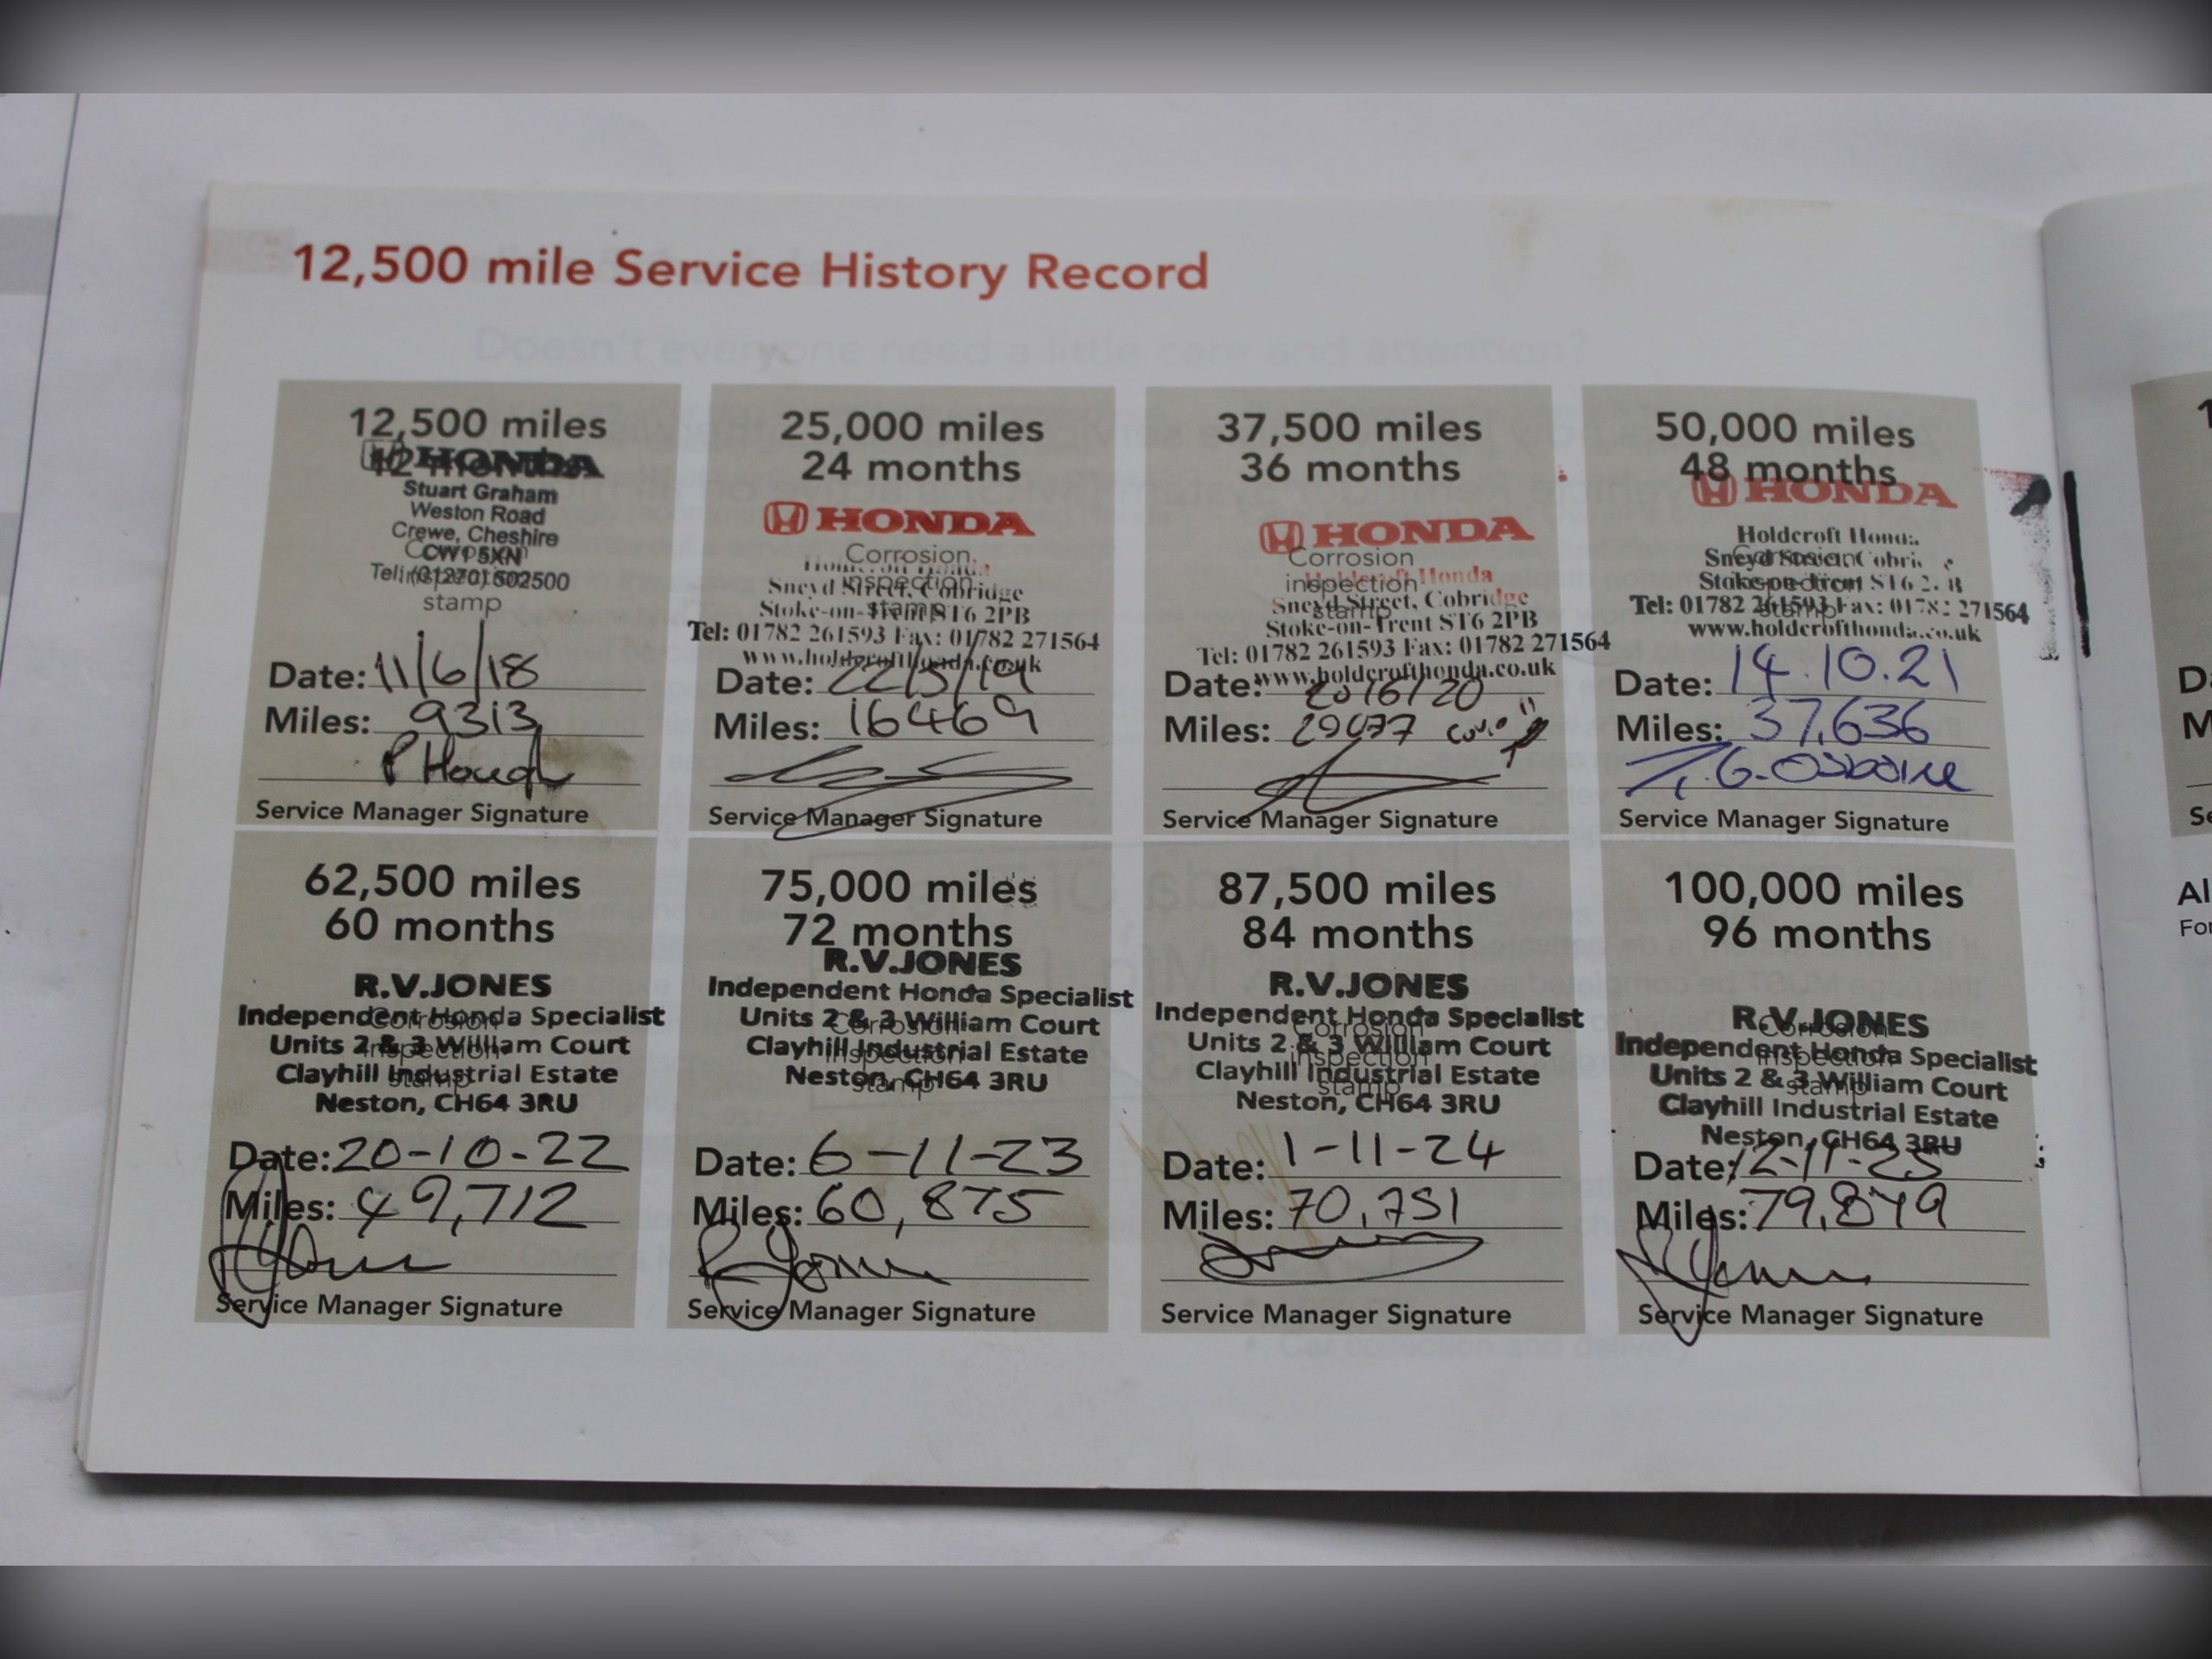 12,500 mile Service History Record
Doesn't everyone need a little care and attention?
12,500 miles
12 months
HONDA
Stuart Graham
Weston Road
Crewe, Cheshire
CW1 5XN
Tel: (01270) 502500
Corrosion
inspection
stamp
Date: 11/6/18
Miles: 9313
P Hough
Service Manager Signature
25,000 miles
24 months
HONDA
Corrosion
inspection
stamp
Sneyd Street, Cobridge
Stoke-on-Trent ST6 2PB
Tel: 01782 261593 Fax: 01782 271564
www.holdcrofthonda.co.uk
Date: 22/5/19
Miles: 16469
Service Manager Signature
37,500 miles
36 months
HONDA
Corrosion
inspection
stamp
Holdcroft Honda
Sneyd Street, Cobridge
Stoke-on-Trent ST6 2PB
Tel: 01782 261593 Fax: 01782 271564
www.holdcrofthonda.co.uk
Date: 20/6/20
Miles:
Service Manager Signature
50,000 miles
48 months
HONDA
Holdcroft Honda
Sneyd Street, Cobri
Stoke-on-Trent ST6 2 B
Tel: 01782 261593 Fax: 01782 271564
www.holdcrofthonda.co.uk
Corrosion
inspection
stamp
Date: 14.10.21
Miles: 37,636
G. Osborne
Service Manager Signature
62,500 miles
60 months
R.V.JONES
Independent Honda Specialist
Units 2 & 3 William Court
Clayhill Industrial Estate
Neston, CH64 3RU
Corrosion
inspection
stamp
Date: 20-10-22
Miles: 49,712
Service Manager Signature
75,000 miles
72 months
R.V.JONES
Independent Honda Specialist
Units 2 & 3 William Court
Clayhill Industrial Estate
Neston, CH64 3RU
Corrosion
inspection
stamp
Date: 6-11-23
Miles: 60,875
Service Manager Signature
87,500 miles
84 months
R.V.JONES
Independent Honda Specialist
Units 2 & 3 William Court
Clayhill Industrial Estate
Neston, CH64 3RU
Corrosion
inspection
stamp
Date: 1-11-24
Miles: 70,751
Service Manager Signature
100,000 miles
96 months
R.V.JONES
Independent Honda Specialist
Units 2 & 3 William Court
Clayhill Industrial Estate
Neston, CH64 3RU
Corrosion
inspection
stamp
Date: 12-11-25
Miles: 79,849
Service Manager Signature